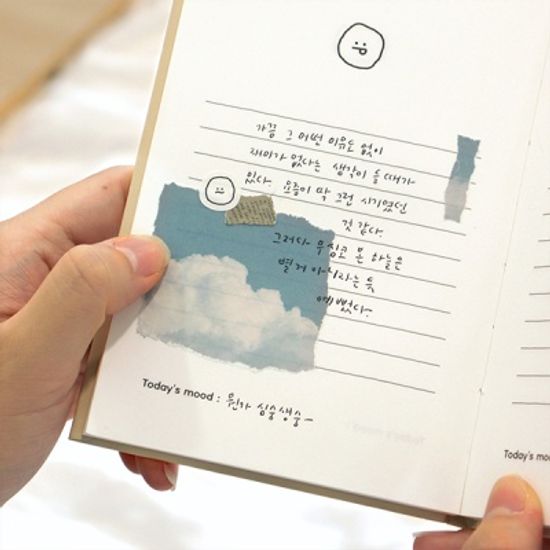 가끔 그 어떤 이유도 없이
재미가 없다는 생각이 들 때가
있다. 요즘이 딱 그런 시기였던
것 같다.
그러다 무심코 본 하늘은
별거 아니라는 듯
예뻤다.
Today's mood : 뭔가 싱숭생숭~
Today's mo